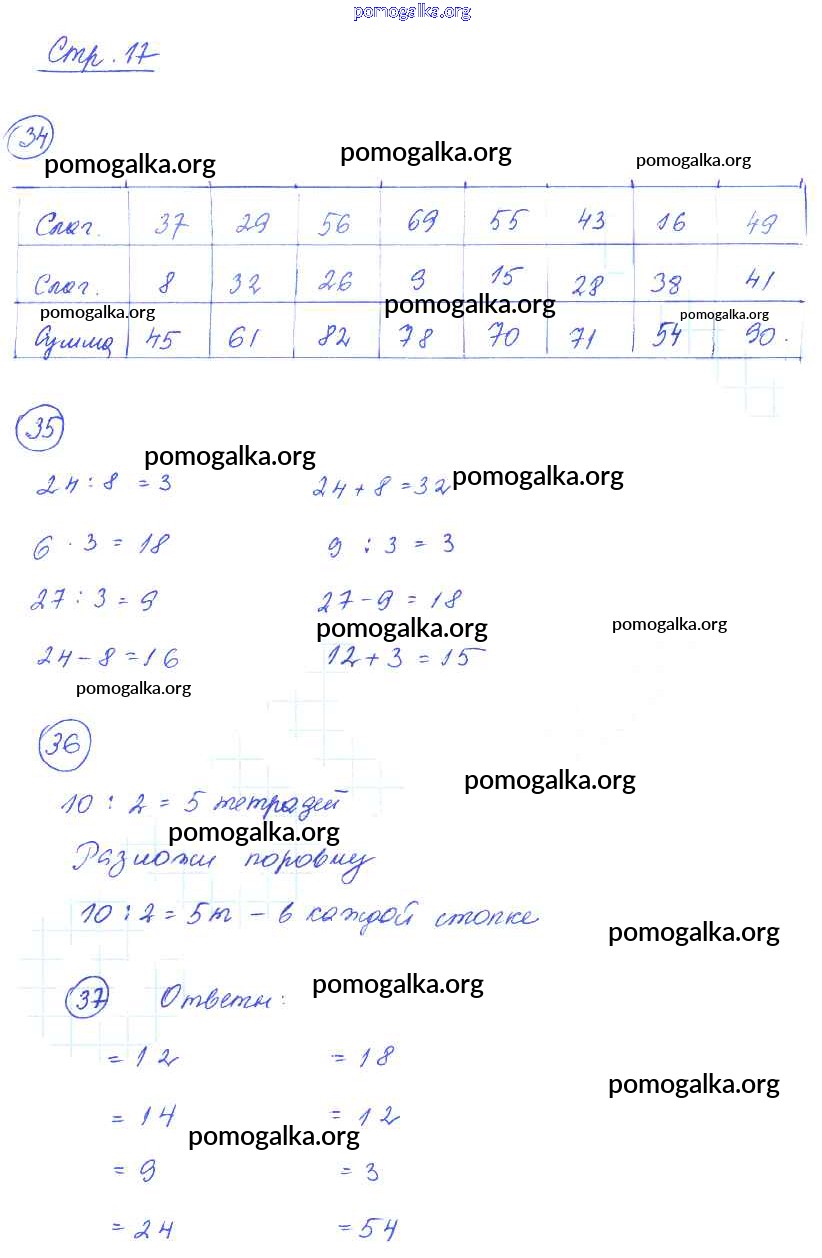 pomogalka.org
Стр. 17
34
pomogalka.org pomogalka.org pomogalka.org
Слаг. 37 29 56 69 55 43 16 49
Слаг. 8 32 26 9 15 28 38 41
pomogalka.org pomogalka.org pomogalka.org
Сумма 45 61 82 78 70 71 54 90.
35
pomogalka.org pomogalka.org
24 : 8 = 3 24 + 8 = 32
6 · 3 = 18 9 : 3 = 3
27 : 3 = 9 27 - 9 = 18
pomogalka.org pomogalka.org
24 - 8 = 16 12 + 3 = 15
pomogalka.org
36
pomogalka.org
10 : 2 = 5 тетрадей
pomogalka.org
Разложи поровну
10 : 2 = 5т - в каждой стопке
pomogalka.org
37 Ответы: pomogalka.org
= 12 = 18
pomogalka.org
= 14 = 12
pomogalka.org
= 9 = 3
= 24 = 54